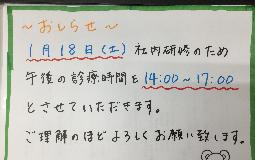 ～おしらせ～
1月18日(土) 社内研修のため
午後の診療時間を14:00～17:00
とさせていただきます。
ご理解のほどよろしくお願い致します。